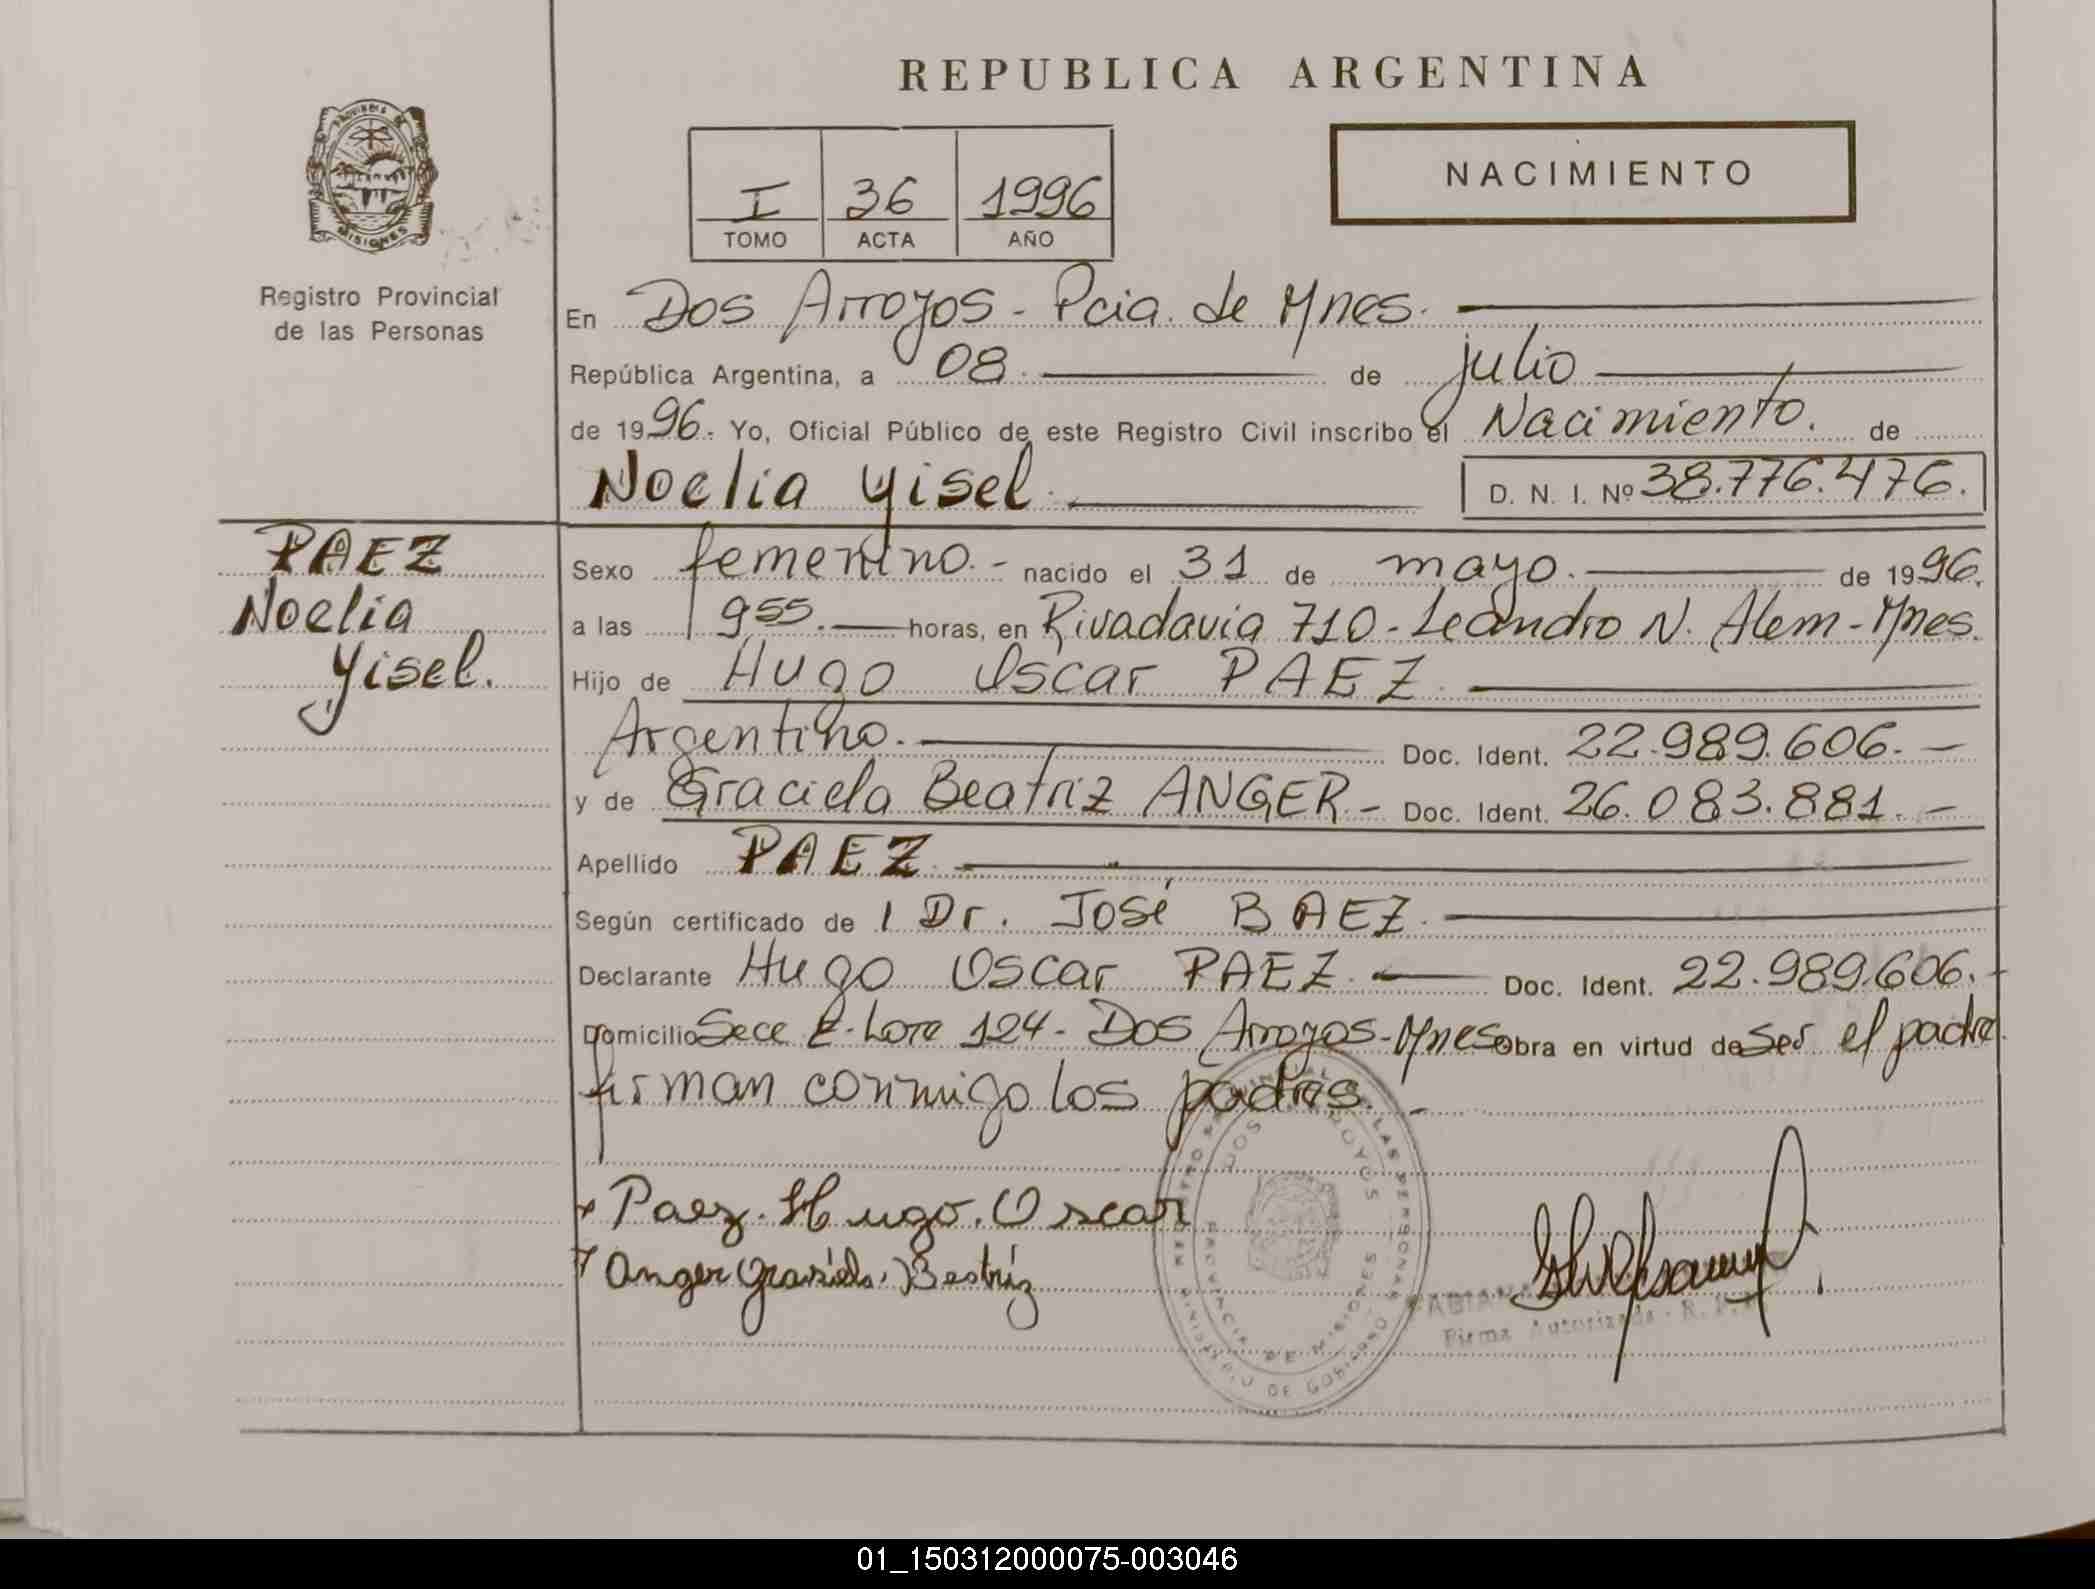 REPUBLICA ARGENTINA
PROVINCIA DE
MISIONES
Registro Provincial
de las Personas
I 36 1996
TOMO ACTA AÑO
NACIMIENTO
En Dos Arroyos - Pcia. de Mnes.
República Argentina, a 08. de julio
de 1996. Yo, Oficial Público de este Registro Civil inscribo el Nacimiento. de
Noelia Yisel. D. N. I. Nº 38.776.476.
PAEZ
Noelia
Yisel.
Sexo femenino.- nacido el 31 de mayo. de 1996.
a las 9 55. horas, en Rivadavia 710 - Leandro N. Alem - Mnes.
Hijo de Hugo Oscar PAEZ.
Argentino. Doc. Ident. 22.989.606. —
y de Graciela Beatriz ANGER - Doc. Ident. 26.083.881. —
Apellido PAEZ.
Según certificado de l Dr. José BAEZ.
Declarante Hugo Oscar PAEZ. Doc. Ident. 22.989.606.
Domicilio Secc Lote 124 - Dos Arroyos - Mnes Obra en virtud de Ser el padre
firman conmigo los padres. -
Paez. Hugo. Oscar
Anger Grasiela. Beatriz
REGISTRO PROVINCIAL DE LAS PERSONAS
DOS ARROYOS
PROVINCIA DE MISIONES
MINISTERIO DE GOBIERNO
Firma Autorizada - R. P. P.
01_150312000075-003046